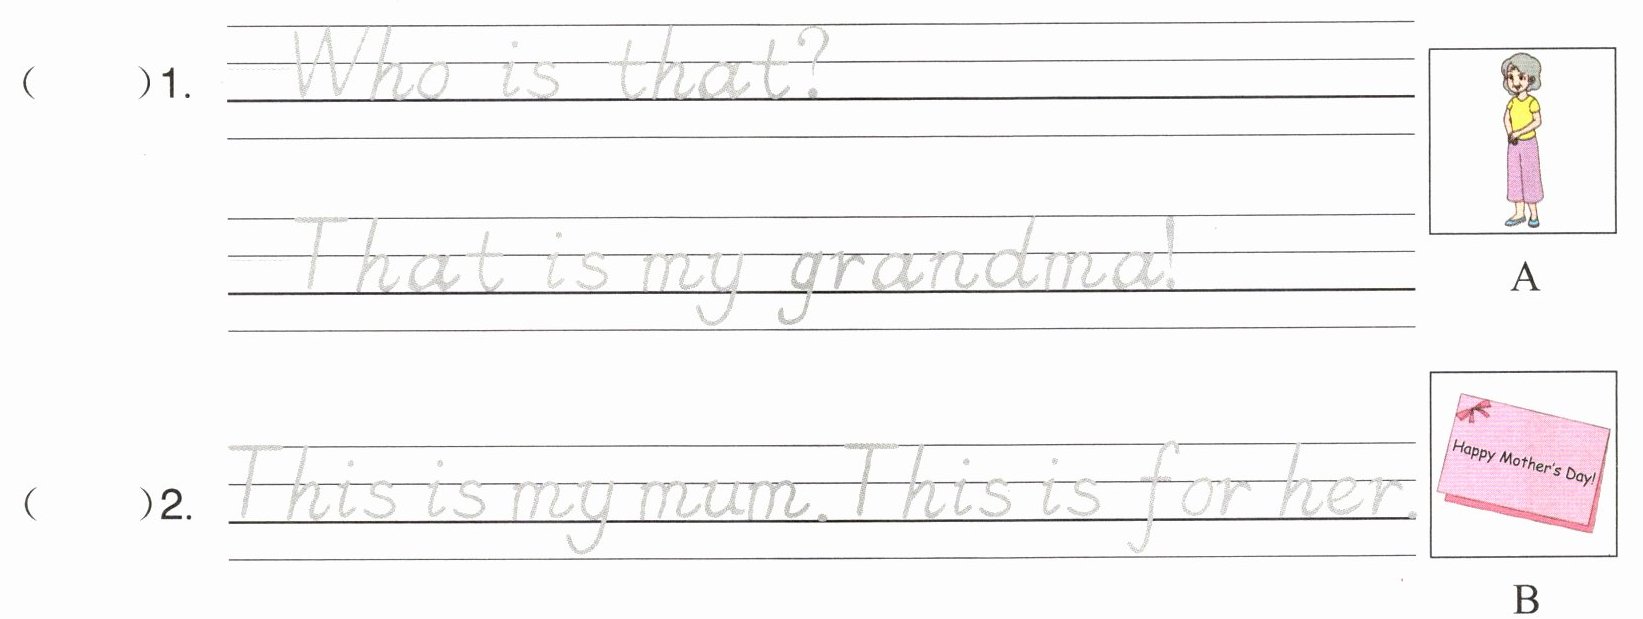 (    )1. Who is that?
That is my grandma!
A
(    )2. This is my mum. This is for her.
Happy Mother's Day!
B